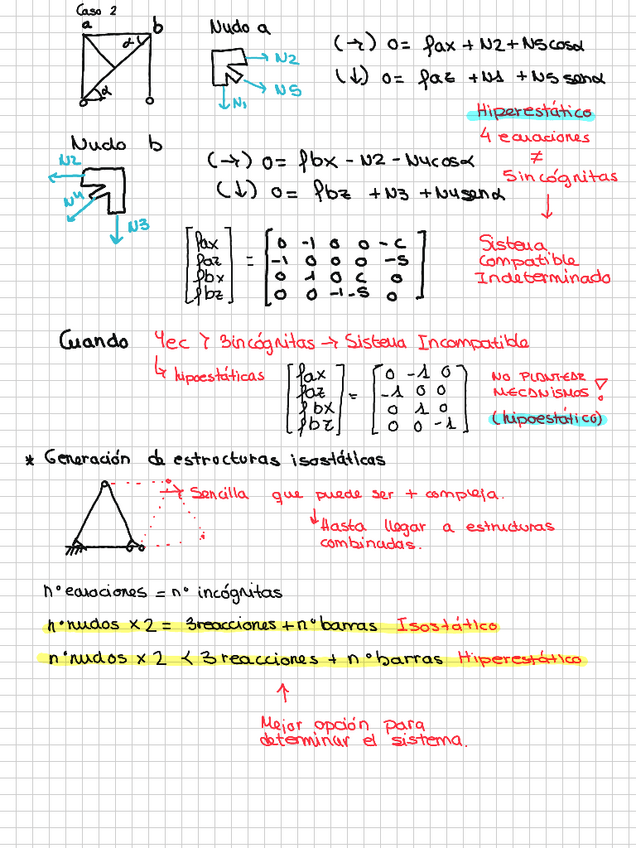 Caso 2
a
b
α
α
Nudo a
N2
N5
N1
(→) 0 = fax + N2 + N5 cosα
(↓) 0 = faz + N1 + N5 senα
Hiperestático
4 ecuaciones
≠
5 incógnitas
Nudo b
N2
N4
N3
(→) 0 = fbx - N2 - N4cosα
(↓) 0 = fbz + N3 + N4senα
[fax faz fbx fbz] =
0 -1 0 0 -C
-1 0 0 0 -S
0 1 0 C 0
0 0 -1 -S 0
Sistema
compatible
Indeterminado
Cuando 4ec > 3incógnitas → Sistema Incompatible
↳ hipoestáticas
[fax faz fbx fbz] =
0 -1 0
-1 0 0
0 1 0
0 0 -1
NO PLANTEAR
MECANISMOS!
(hipoestático)
* Generación de estructuras isostáticas
→ Sencilla que puede ser + compleja.
↳ Hasta llegar a estructuras
combinadas.
nº ecuaciones = nº incógnitas
nº nudos x 2 = 3reacciones + nº barras Isostático
nº nudos x 2 < 3 reacciones + nº barras Hiperestático
↑
Mejor opción para
determinar el sistema.